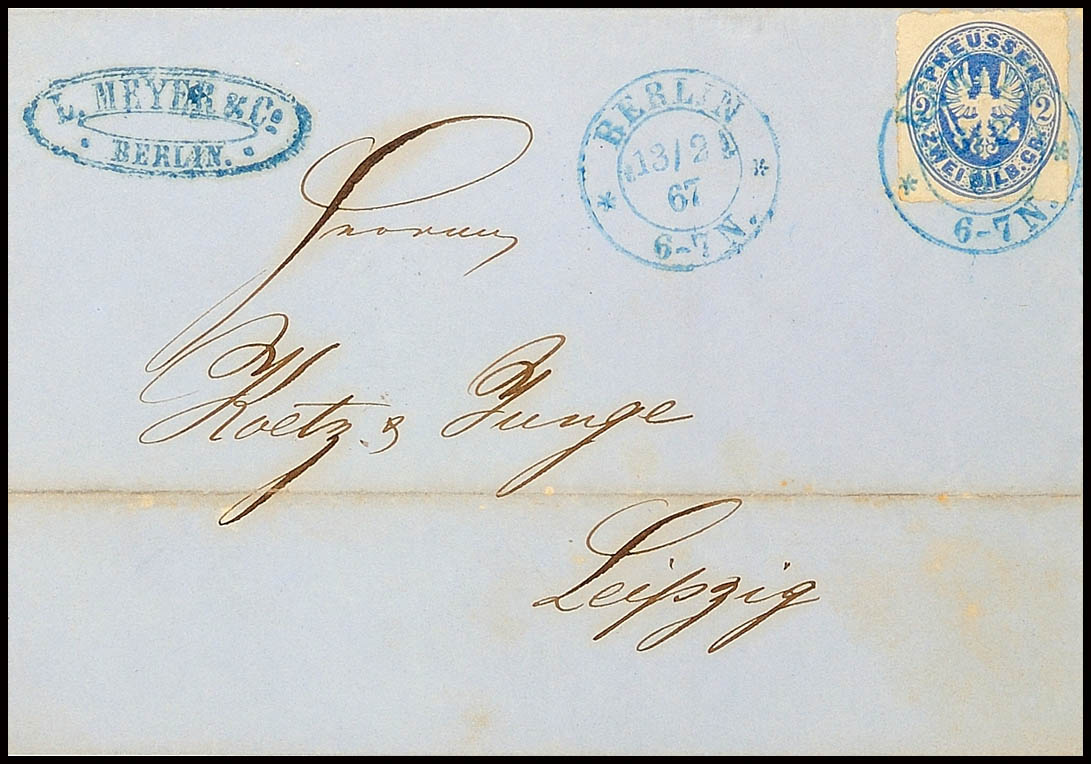 L. MEYER & Co
BERLIN.
BERLIN
13/2
67
6-7N.
PREUSSEN
2 2
ZWEI SILB. GR.
6-7N.
Koetz & Junge
Leipzig